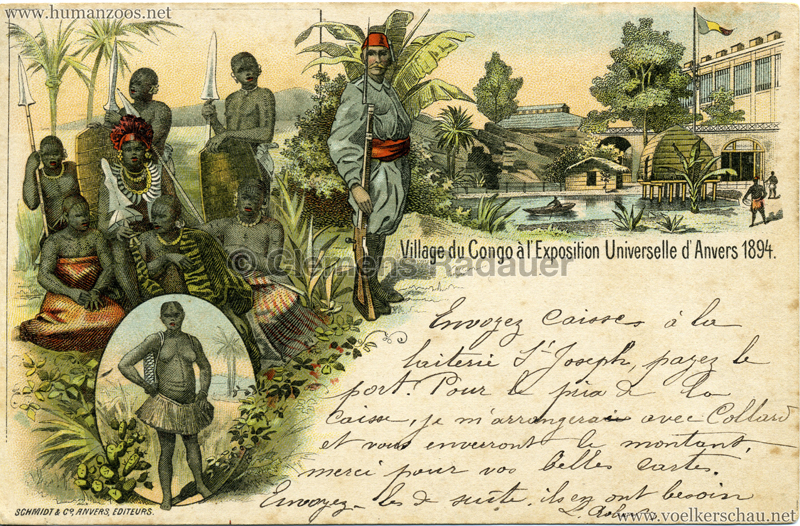 www.humanzoos.net
© Clemens Radauer
Village du Congo à l'Exposition Universelle d'Anvers 1894.
Envoyez caisses à la
laiterie St Joseph, payez le
port. Pour le prix de la
caisse, je m'arrangerai avec Collard
et vous enverront le montant,
merci pour vos belles cartes.
Envoyez-les de suite, ils en ont besoin
SCHMIDT & Co, ANVERS, EDITEURS.
www.voelkerschau.net